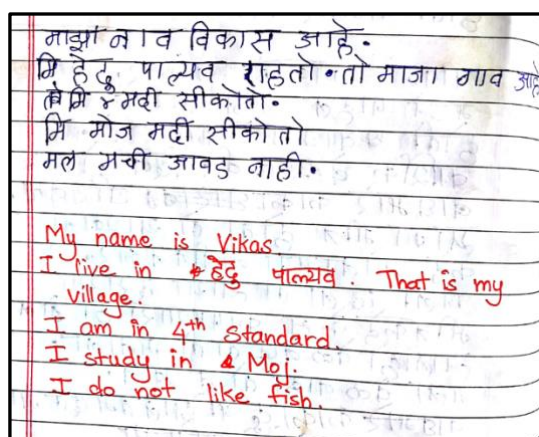 माझा नाव विकास आहे.
मि हेदु पाल्यव राहतो. तो माजा गाव आहे
तेथे मि ४ मदी सीकोतो.
मि मोज मदी सीकोतो
मल मची आवड नाही.
My name is Vikas
I live in हेदु पाल्यव. That is my
village.
I am in 4th Standard.
I study in Moj.
I do not like fish.